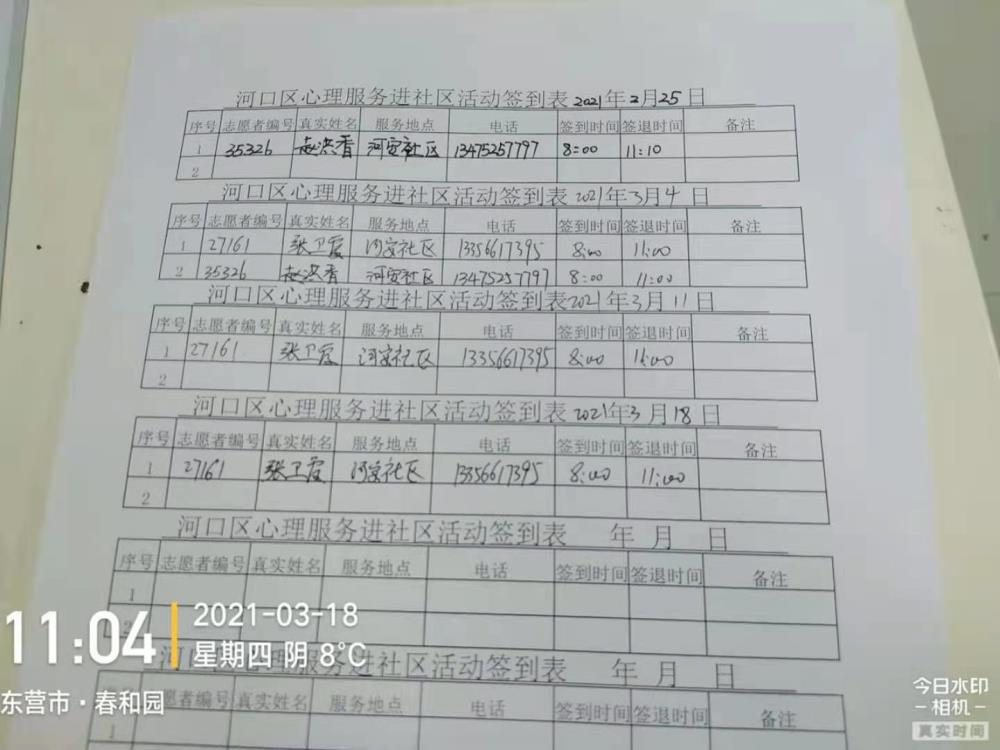 河口区心理服务进社区活动签到表2021年2月25日
序号 志愿者编号 真实姓名 服务地点 电话 签到时间 签退时间 备注
1 35326 赵洪香 河安社区 13475257797 8:00 11:10
2
河口区心理服务进社区活动签到表2021年3月4日
序号 志愿者编号 真实姓名 服务地点 电话 签到时间 签退时间 备注
1 27161 张卫霞 河安社区 13356617395 8:00 11:00
2 35326 赵洪香 河安社区 13475257797 8:00 11:00
河口区心理服务进社区活动签到表2021年3月11日
序号 志愿者编号 真实姓名 服务地点 电话 签到时间 签退时间 备注
1 27161 张卫霞 河安社区 13356617395 8:00 11:00
2
河口区心理服务进社区活动签到表2021年3月18日
序号 志愿者编号 真实姓名 服务地点 电话 签到时间 签退时间 备注
1 27161 张卫霞 河安社区 13356617395 8:00 11:00
2
河口区心理服务进社区活动签到表 年 月 日
序号 志愿者编号 真实姓名 服务地点 电话 签到时间 签退时间 备注
1
2
河口区心理服务进社区活动签到表 年 月 日
序号 志愿者编号 真实姓名 服务地点 电话 签到时间 签退时间 备注
1
11:04
2021-03-18
星期四 阴 8°C
东营市·春和园
今日水印
-相机-
真实时间